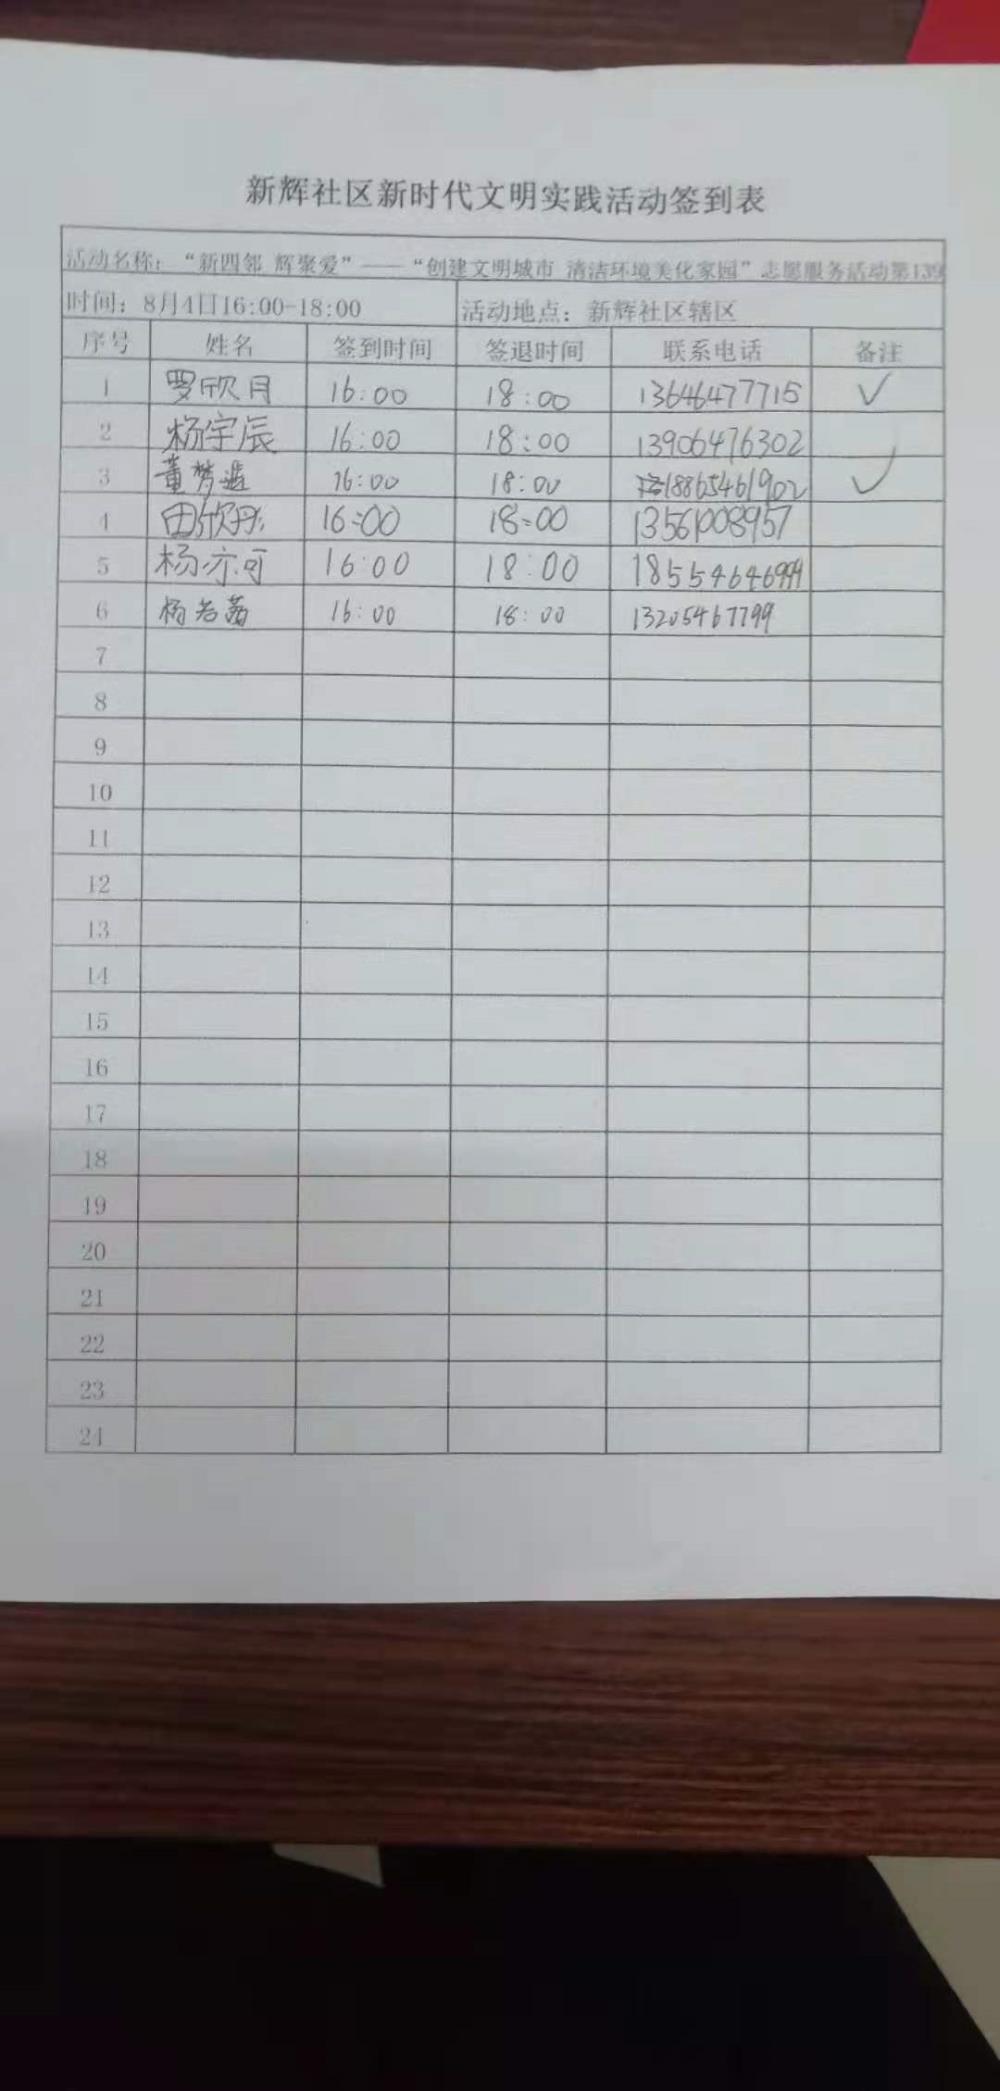 新辉社区新时代文明实践活动签到表
活动名称：“新四邻 辉聚爱”——“创建文明城市 清洁环境美化家园”志愿服务活动第139
时间：8月4日16:00-18:00 活动地点：新辉社区辖区
序号 姓名 签到时间 签退时间 联系电话 备注
1 罗欣月 16:00 18:00 13646477715 ✓
2 杨宇辰 16:00 18:00 13906476302
3 董梦遥 16:00 18:00 18865461902 ✓
4 田欣彤 16:00 18:00 13561008957
5 杨亦可 16:00 18:00 18554646999
6 杨若茜 16:00 18:00 13205467799
7
8
9
10
11
12
13
14
15
16
17
18
19
20
21
22
23
24